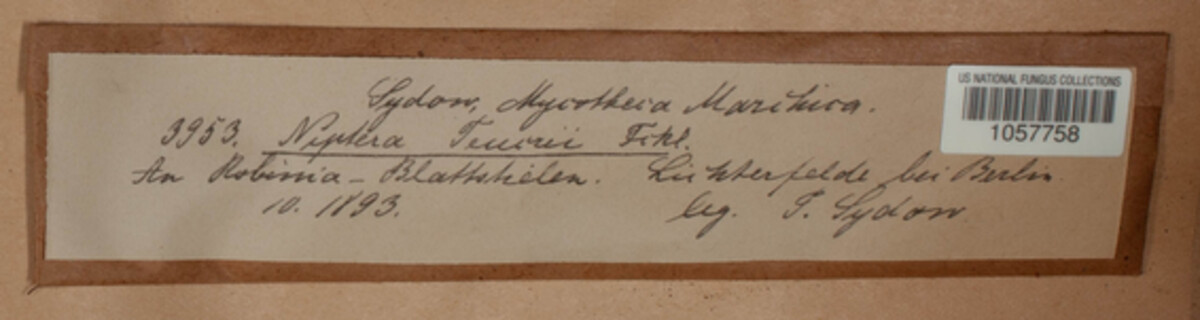 Sydow, Mycotheca Marchica.
3953. Niptera Teucrii Fckl.
An Robinia - Blattstielen. Lichterfelde bei Berlin.
10. 1893. leg. P. Sydow
US NATIONAL FUNGUS COLLECTIONS
1057758